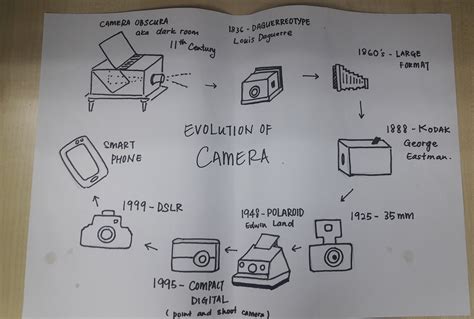 CAMERA OBSCURA
aka dark room
11th Century
1836 - DAGUERREOTYPE
Louis Daguerre
1860's - LARGE
FORMAT
EVOLUTION OF
CAMERA.
1888 - KODAK
George
Eastman.
SMART
PHONE
1999 - DSLR
1948 - POLAROID
Edwin Land
1925 - 35mm
1995 - COMPACT
DIGITAL
(point and shoot camera)